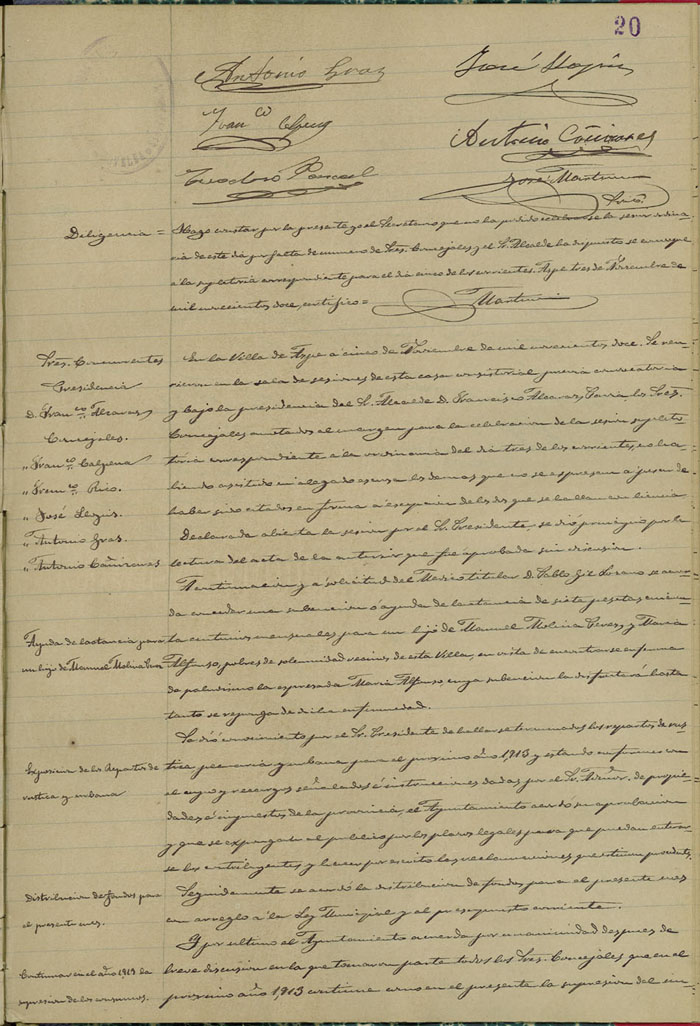 20
Antonio Gras
José
Fran.co
Antonio Cañizares
Teodoro Pascual
José Martinez
Srio.
Diligencia = Hago constar por la presente yo el Secretario que no ha podido celebrarse la sesion ordina-
ria de este dia por falta de numero de Sres. Concejales y el Sr. Alcalde ha dispuesto se convoque
a la supletoria correspondiente para el dia cinco de los corrientes. Aspe tres de Noviembre de
mil novecientos doce, certifico =
Martinez
Sres. Concurrentes
Presidencia
D. Fran.co Alcaraz
Concejales.
" Fran.co Calpena
" Fran.co Rico.
" José
" Antonio Gras.
" Antonio Cañizares
En la Villa de Aspe a cinco de Noviembre de mil novecientos doce. Se reu-
nieron en la sala de sesiones de esta casa consistorial previa convocatoria
y bajo la presidencia del Sr. Alcalde D. Francisco Alcaraz los Sres.
Concejales anotados al margen para la celebracion de la sesion supleto-
ria correspondiente a la ordinaria del dia tres de los corrientes, no ha-
biendo asistido ni alegado escusa los demas que no se espresan a pesar de
haber sido citados en forma a escepcion de los que se hallan con licencia.
Declarada abierta la sesion por el Sr. Presidente, se dió principio por la
lectura del acta de la anterior que fué aprobada sin discusion.
A continuacion y a solicitud del Medico titular D. Pablo Gil Lozano se acor-
dó conceder una subvencion ó ayuda de lactancia de siete pesetas cincuen-
Ayuda de lactancia para
un hijo de Manuel Molina Perez
ta centimos mensuales para un hijo de Manuel Molina Perez y Maria
Alfonso, pobres de solemnidad vecinos de esta Villa, en vista de encontrarse enferma
de paludismo la espresada Maria Alfonso, cuya subvencion la disfrutará hasta
tanto se reponga de dicha enfermedad.
Se dió conocimiento por el Sr. Presidente de hallarse terminados los repartos de rus-
Exposicion de los Repartos de
rustica y urbana
tica pecuaria y urbana para el proximo año 1,913 y estando conformes con
el cupo y recargos señalados é instrucciones dadas por el Sr. Admor. de propie-
dades é impuestos de la provincia, el Ayuntamiento acordó su aprobacion
y que se expongan al publico por los plazos legales para que puedan enterar-
se los contribuyentes y hacer por escrito las reclamaciones que estimen procedentes.
Distribucion de fondos para
el presente mes.
Seguidamente se acordó la distribucion de fondos para el presente mes
con arreglo á la Ley Municipal y al presupuesto corriente.
Y por ultimo el Ayuntamiento acuerda por unanimidad despues de
Continuar en el año 1913 la
supresion de los consumos.
breve discusion en la que tomaron parte todos los Sres. Concejales que en el
proximo año 1,913 continue como en el presente la supresion del im-